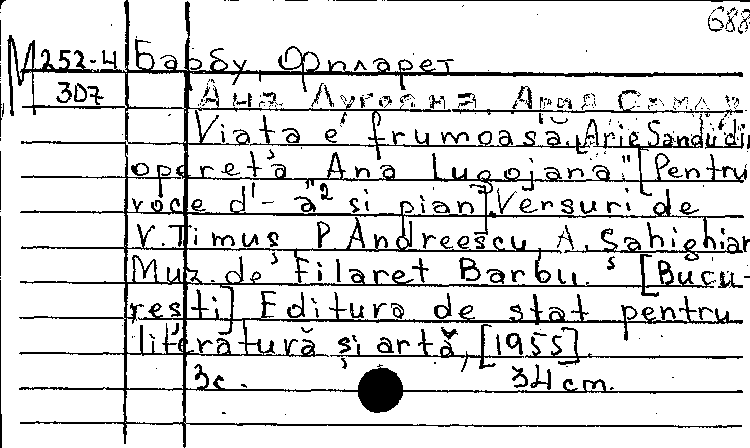 688
M 252-4 Барбу, Филарет
307 Ана Лугояна. Ария Санду
Viata e frumoasa. [Arie Sandu din
opereta Ana Lugojana." [Pentru
voce d'-a"2 și pian]. Versuri de
V. Timuș, P. Andreescu, A. Sahighian
Muz. de Filaret Barbu. [Bucu-
rești] Editura de stat pentru
literatură și artă, [1955].
3c. 34 cm.